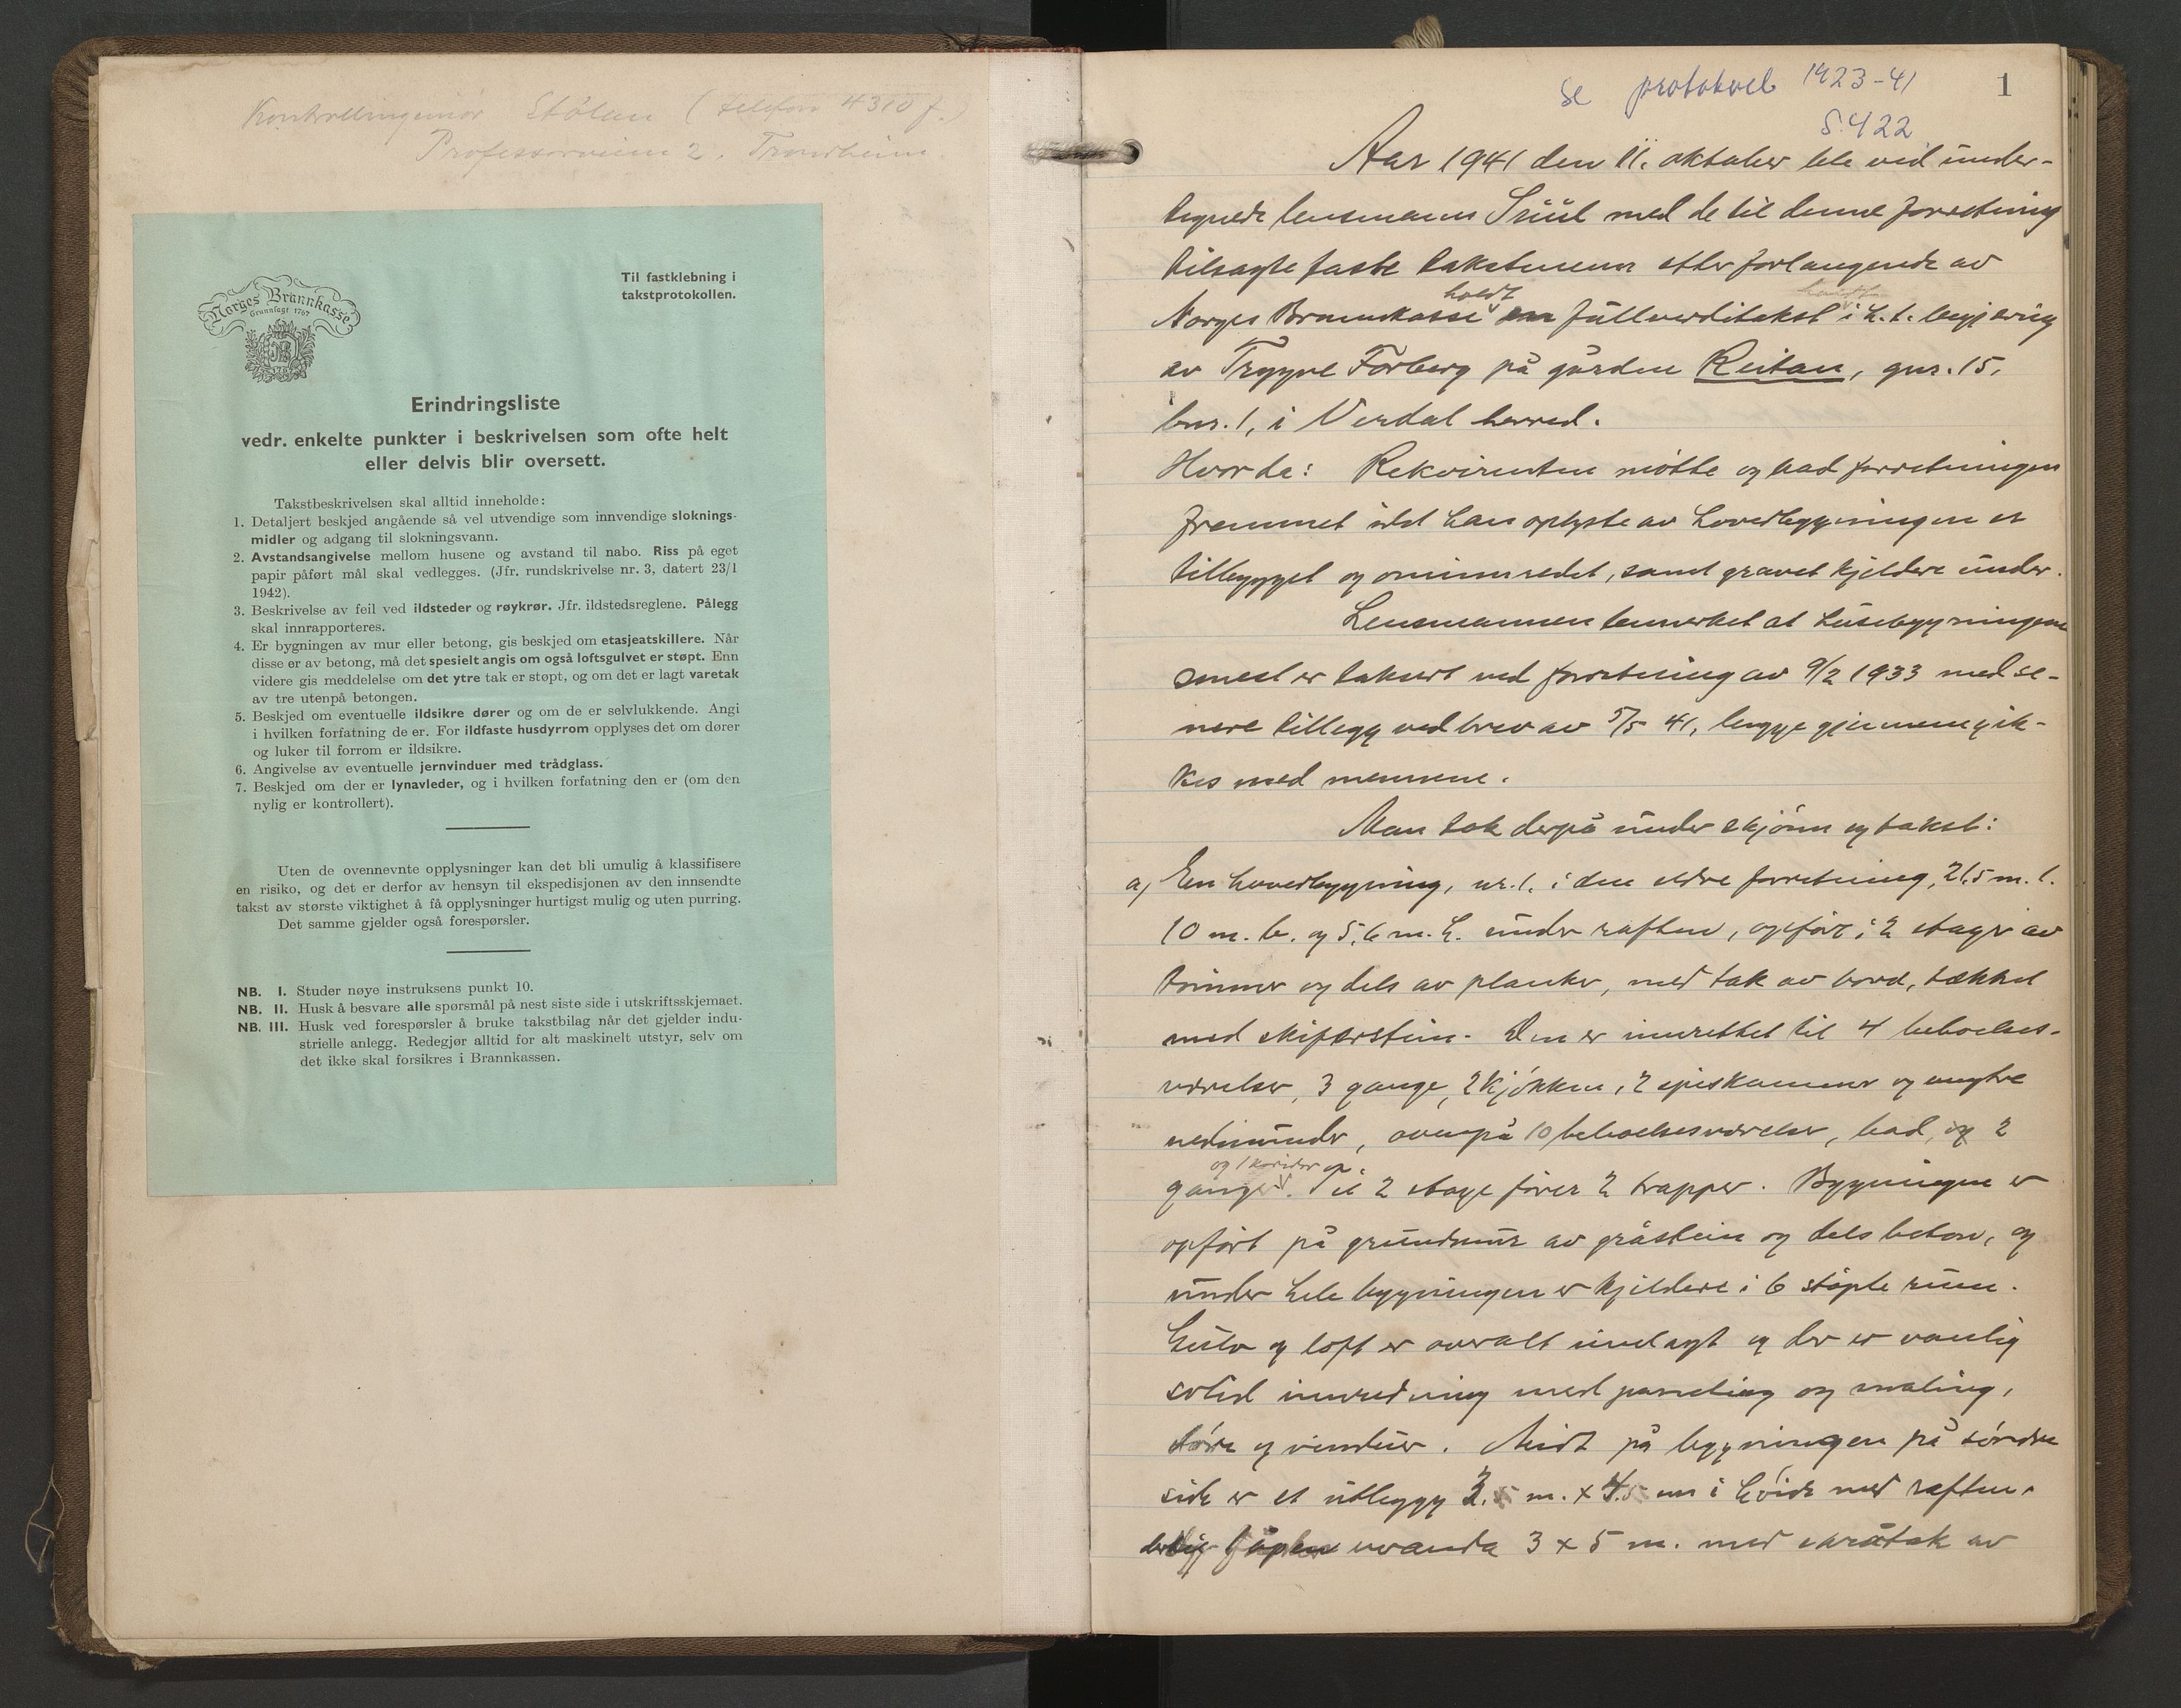 Kontrollingeniør Stölan (telefon 4310 f.)
Professorveien 2. Trondheim.
Norges Brannkasse
Grunnlagt 1767
Til fastklebning i
takstprotokollen.
Erindringsliste
vedr. enkelte punkter i beskrivelsen som ofte helt
eller delvis blir oversett.
Takstbeskrivelsen skal alltid inneholde:
1. Detaljert beskjed angående så vel utvendige som innvendige sloknings-
midler og adgang til slokningsvann.
2. Avstandsangivelse mellom husene og avstand til nabo. Riss på eget
papir påført mål skal vedlegges. (Jfr. rundskrivelse nr. 3, datert 23/1
1942).
3. Beskrivelse av feil ved ildsteder og røykrør. Jfr. ildstedsreglene. Pålegg
skal innrapporteres.
4. Er bygningen av mur eller betong, gis beskjed om etasjeatskillere. Når
disse er av betong, må det spesielt angis om også loftsgulvet er støpt. Enn
videre gis meddelelse om det ytre tak er støpt, og om det er lagt varetak
av tre utenpå betongen.
5. Beskjed om eventuelle ildsikre dører og om de er selvlukkende. Angi
i hvilken forfatning de er. For ildfaste husdyrrom opplyses det om dører
og luker til forrom er ildsikre.
6. Angivelse av eventuelle jernvinduer med trådglass.
7. Beskjed om der er lynavleder, og i hvilken forfatning den er (om den
nylig er kontrollert).
Uten de ovennevnte opplysninger kan det bli umulig å klassifisere
en risiko, og det er derfor av hensyn til ekspedisjonen av den innsendte
takst av største viktighet å få opplysninger hurtigst mulig og uten purring.
Det samme gjelder også forespørsler.
NB. I. Studer nøye instruksens punkt 10.
NB. II. Husk å besvare alle spørsmål på nest siste side i utskriftsskjemaet.
NB. III. Husk ved forespørsler å bruke takstbilag når det gjelder indu-
strielle anlegg. Redegjør alltid for alt maskinelt utstyr, selv om
det ikke skal forsikres i Brannkassen.
se protokoll 1923-41
S. 422
1
Aar 1941 den 11. oktober ble ved under-
tegnede lensmann Suul med de til denne forretning
tilsagte faste takstmenn etter forlangende av
Norges Brannkasse holdt fullverditakst i h.t. begjæring
av Trygve Forberg på gården Reitan, gnr. 15,
bnr. 1, i Verdal herred.
Hvorda: Rekvirenten møtte og bad forretningen
fremmet idet han oplyste av hovedbygningen er
tilbygget og ominnredet, samt gravet kjeldere under.
Lensmannen bemerket at husebygningene
smest er taksert ved forretning av 9/2 1933 med se-
nere tillegg ved brev av 5/5 41, begge gjennemgik-
kes med mennene.
Man tok derpå under skjønn og takst:
a, En hovedbygning, nr. 1. i den eldre forretning, 21,5 m. l.
10 m. b. og 5,6 m. h. under raften, opført i 2 etager av
tømmer og dels av planker, med tak av bord, tækket
med skiferstein. Den er innrettet til 4 beboelses-
værelser, 3 gange, 2 kjøkken, 2 spiskammer og
nedunder, ovenpå 10 beboelsesværelser, bad, og 2
ganger og 1 koridor op. Til 2 etage fører 2 trapper. Bygningen er
opført på grundmur av gråstein og dels beton, og
under hele bygningen er kjeldere i 6 støpte rum.
Gulv og loft er overalt innlagt og der er vanlig
solid innredning med paneling og maling,
døre og vinduer. Midt på bygningen på søndre
side er et utbygg 3. m. x 4. m i høide med raften,
veranda 3 x 5 m. med skråtak av